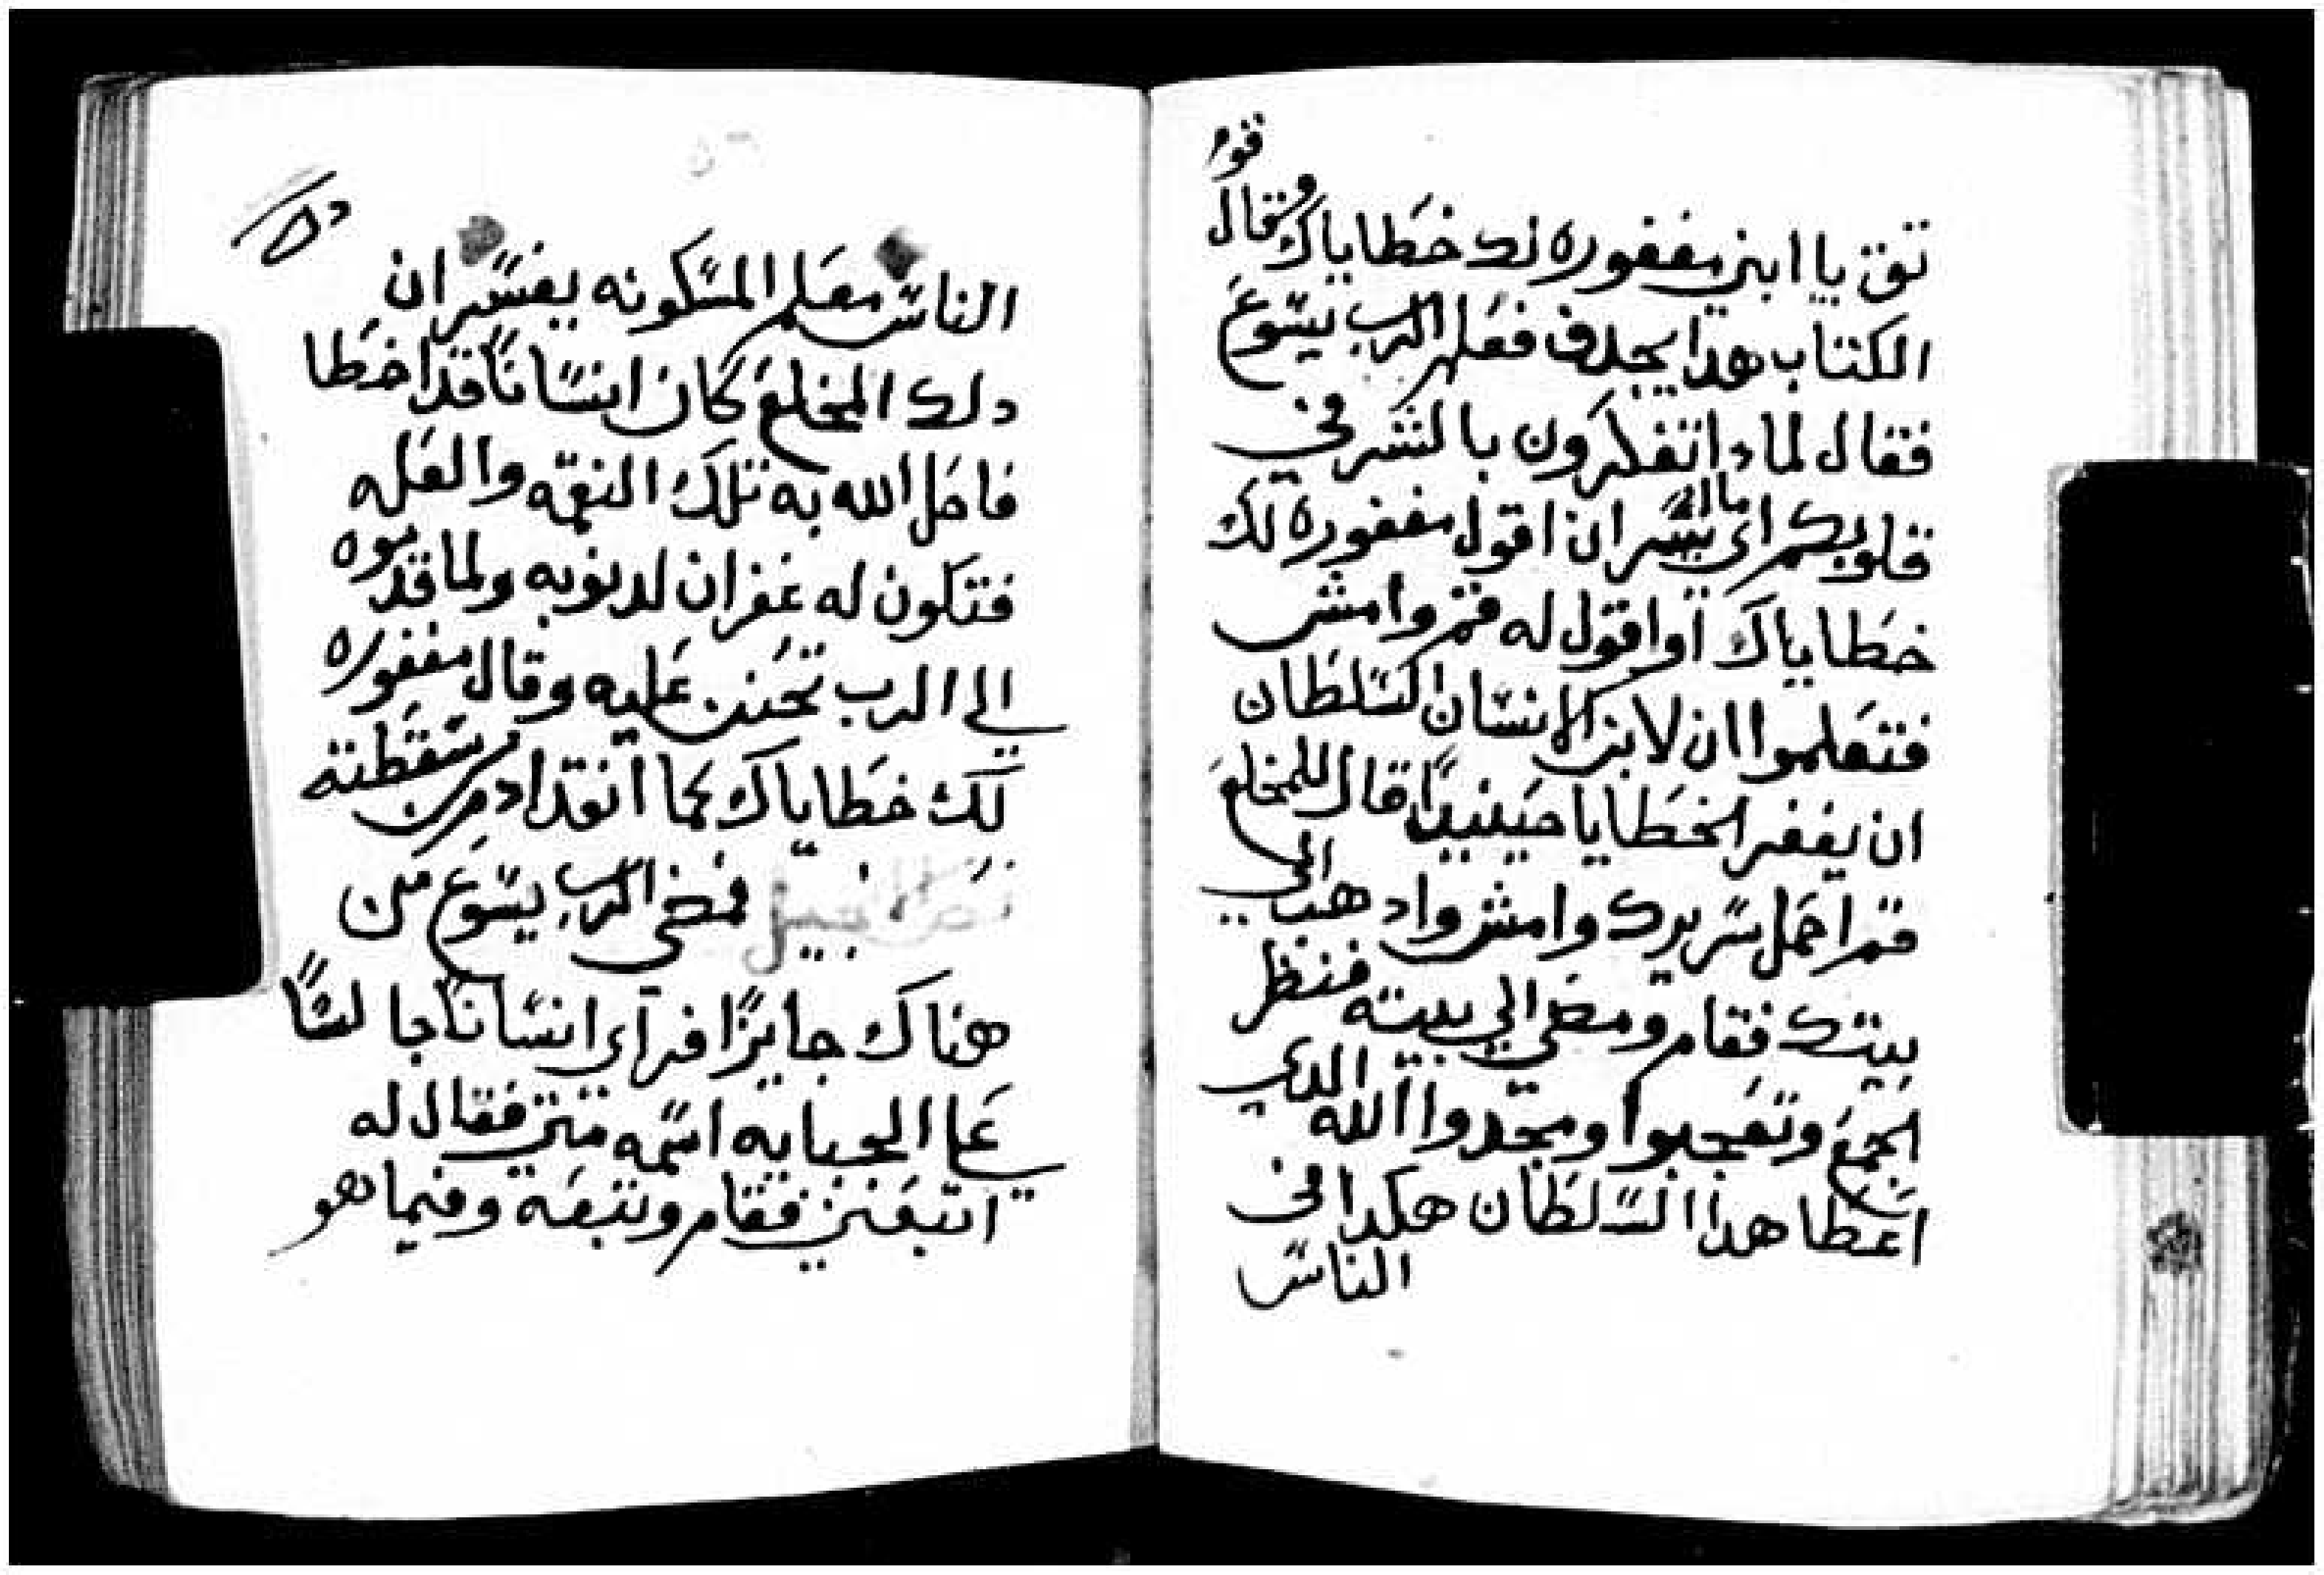 ثق يا ابني مغفوره لك خطاياك فقال
قوم
الكتاب هدا يجدف فعلم الرب يسوع
فقال لمادا تفكرون بالشر في
قلوبكم ايما ايسر ان اقول مغفوره لك
خطاياك او اقول له قم وامش
فتعلموا ان لابن الانسان السلطان
ان يغفر الخطايا حينيدا قال للمخلع
قم احمل سريرك وامش وادهب الي
بيتك فقام ومضي الي بيته فنظر
الجمع وتعجبوا ومجدوا الله الدي
اعطا هدا السلطان هكدا في
الناس
الناس معلم المسكونه يفسر ان
دلك المخلع كان انسانا قد اخطا
فاحل الله به تلك النقمه والعله
فتكون له غفران لدنوبه ولما قدموه
الي الرب تحنن عليه وقال مغفوره
لك خطاياك كما انقد ادم من سقطته
نص الانجيل فمضي الرب يسوع من
هناك جايزا فراي انسانا جالسا
علي الجبايه اسمه متي فقال له
اتبعني فقام وتبعه وفيما هو